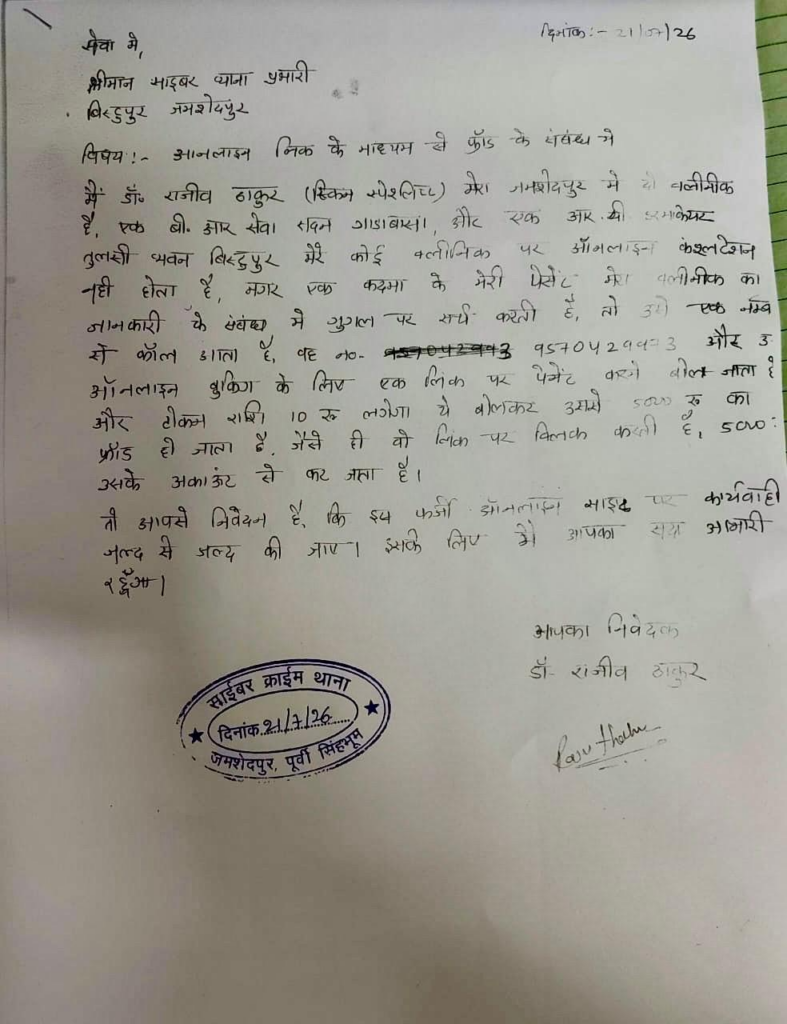 दिनांक :- 21/07/26
सेवा मे,
श्रीमान साइबर थाना प्रभारी
बिस्टुपुर जमशेदपुर
विषय :- आनलाइन लिंक के माध्यम से फ्रॉड के संबंध मे
मैं डॉ॰ राजीव ठाकुर (स्किन स्पेशलिस्ट) मेरा जमशेदपुर मे दो क्लीनीक
है, एक बी. आर सेवा सदन गाडाबासा, और एक आर. वी
तुलसी भवन बिस्टुपुर मेरे कोई क्लीनिक पर ऑनलाइन कंशलटेशन
नही होता है, मगर एक कदमा के मेरी पेसेंट मेरा क्लीनीक का
जानकारी के संबंध मे गुगल पर सर्च करती है, तो उसे एक नम्बर
से कॉल आता है, वह no- और उसे
ऑनलाइन बुकिंग के लिए एक लिंक पर पेमेंट करने बोला जाता है
और टोकन राशि 10 रू लगेगा ये बोलकर उससे 5000 रू का
फ्रॉड हो जाता है. जैसे ही वो लिंक पर क्लिक करती है, 5000:
उसके अकाऊंट से कट जाता है।
तो आपसे निवेदन है, कि इस फर्जी ऑनलाइन साइट पर कार्यवाही
जल्द से जल्द की जाए। इसके लिए मैं आपका सदा आभारी
रहूँगा।
आपका निवेदक
डॉ- राजीव ठाकुर
साईबर क्राईम थाना
दिनांक 21/7/26
जमशेदपुर, पूर्वी सिंहभूम